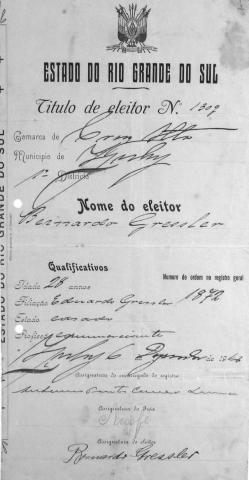 ESTADO DO RIO GRANDE DO SUL
Titulo de eleitor N. 1309
Comarca de Cruz Alta
Municipio de Ijuhy
1º Districto
Nome do eleitor
Bernardo Gressler
Qualificativos
Numero de ordem no registro geral
Idade 28 annos
1872
Filiação Eduardo Gressler
Estado casado
Profissão
Ijuhy 6
de
Assignatura do encarregado do registro
Assignatura do Juiz
Assignatura do eleitor
Bernardo Gressler
ESTADO DO RIO GRANDE DO SUL